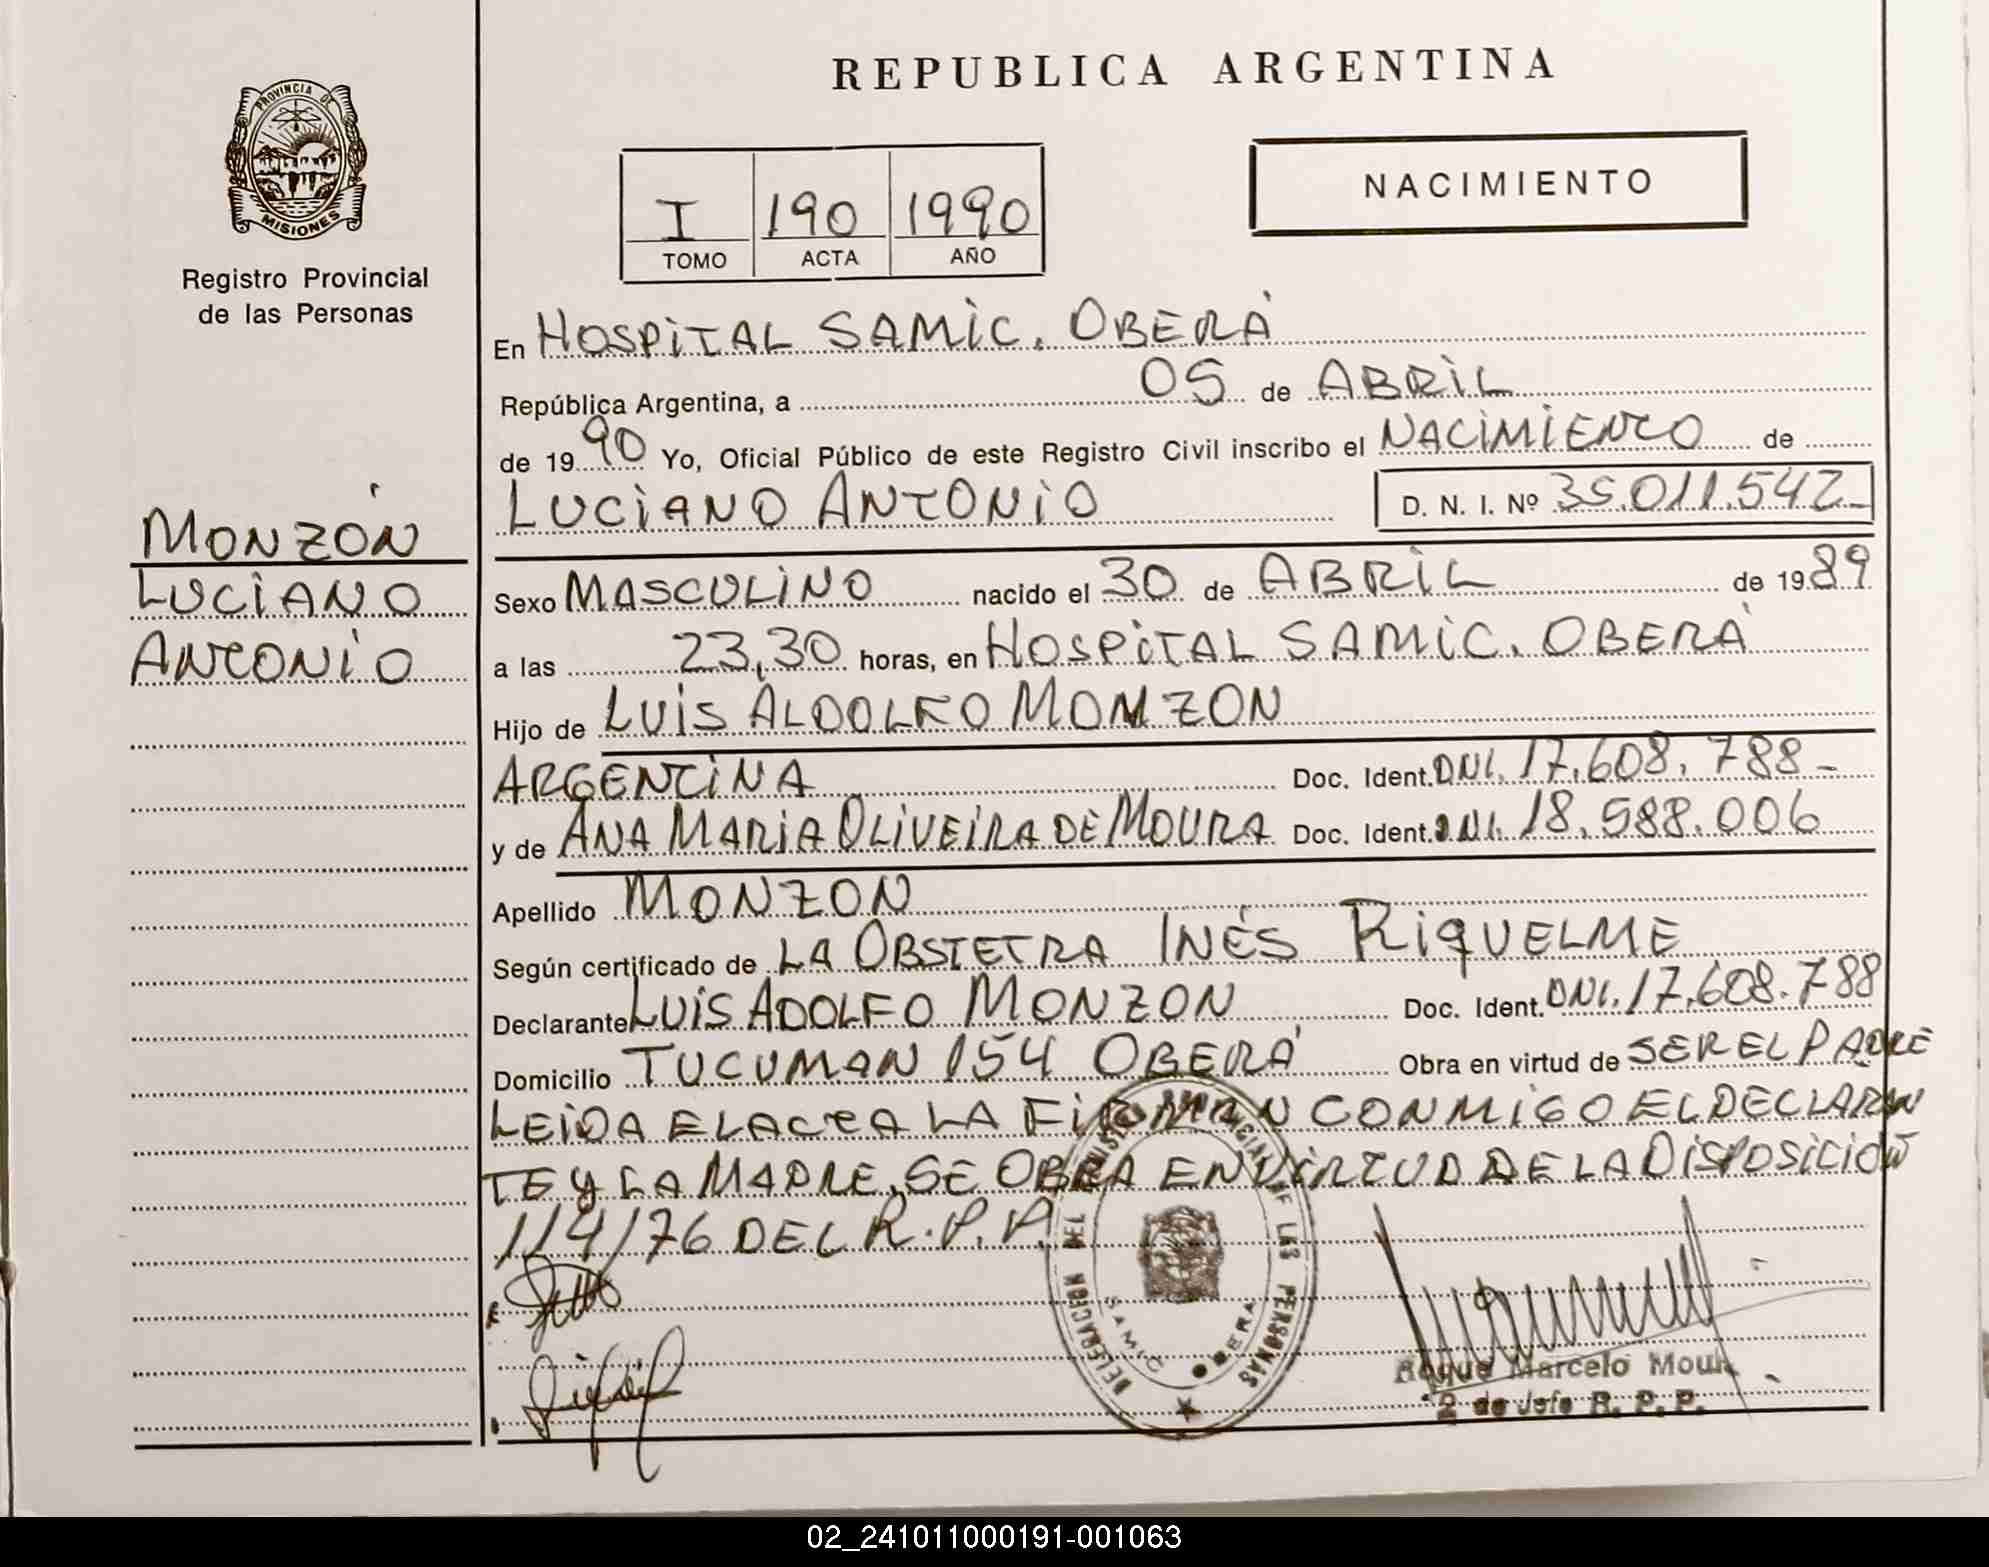 REPUBLICA ARGENTINA
PROVINCIA DE
MISIONES
Registro Provincial
de las Personas
NACIMIENTO
I 190 1990
TOMO ACTA AÑO
En HOSPITAL SAMIC. OBERÁ
República Argentina, a 05 de ABRIL
de 1990 Yo, Oficial Público de este Registro Civil inscribo el NACIMIENTO de
LUCIANO ANTONIO D. N. I. Nº 35.011.542-
MONZÓN
LUCIANO
ANTONIO
Sexo MASCULINO nacido el 30 de ABRIL de 1989
a las 23,30 horas, en HOSPITAL SAMIC. OBERÁ
Hijo de LUIS ALDOLFO MONZON
ARGENTINA Doc. Ident. DNI. 17.608.788-
y de ANA MARIA OLIVEIRA DE MOURA Doc. Ident. DNI. 18.588.006
Apellido MONZON
Según certificado de LA OBSTETRA INÉS RIQUELME
Declarante LUIS ADOLFO MONZON Doc. Ident. DNI. 17.608.788
Domicilio TUCUMAN 154 OBERÁ Obra en virtud de SER EL PADRE
LEIDA EL ACTA LA FIRMAN CONMIGO EL DECLARAN
TE Y LA MADRE. SE OBRA EN VIRTUD DE LA DISPOSICION
114/76 DEL R.P.P.
DELEGACION DEL REGISTRO PROVINCIAL DE LAS PERSONAS
SAMIC OBERA
Roque Marcelo
2 do Jefe R. P. P.
02_241011000191-001063